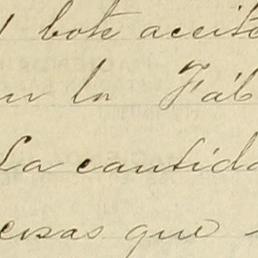 1 bote aceite
en la Fáb
La cantida
cisas que s